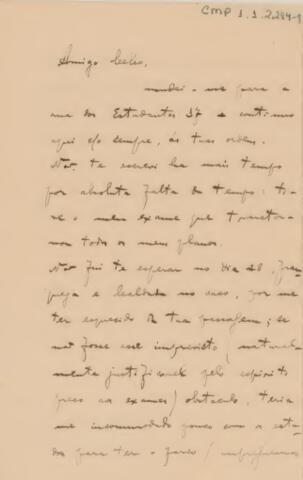 CMP 1.1.2.284-1
Amigo Celso,
mudei-me para a
rua dos Estudantes 37 e continuo
aqui c/o sempre, ás tuas ordens.
Não te escrevi ha mais tempo
por absoluta falta de tempo: ti-
ve o meu exame que transtor-
nou todos os meus planos.
Não fui te esperar no dia 28,
e no caes, por me
ter esquecido da tua passagem; se
não fosse esse imprevisto (natural-
mente justificavel pelo espirito
preso ao exame) obstaculo, teria
me incommodado pouco com a esta-
da para ter o prazer